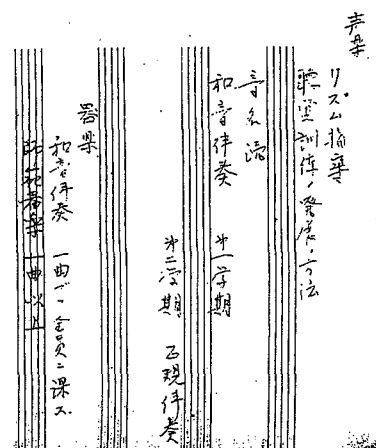 声楽
リズム指導
聴覚訓練ノ発展ノ方法
音名唱
和音伴奏 第一学期
第二学期 正規伴奏
器楽
和音伴奏 一曲ヅツ全員ニ課ス
師範器楽 一曲以上